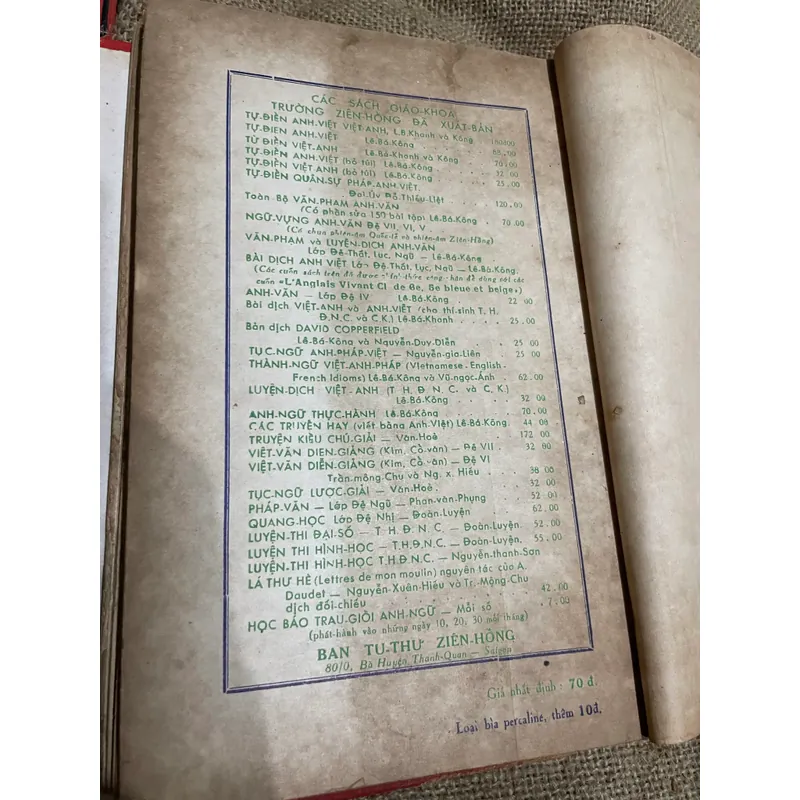 CÁC SÁCH GIÁO-KHOA
TRƯỜNG ZIÊN-HỒNG ĐÃ XUẤT-BẢN
TỰ-ĐIỂN ANH-VIỆT VIỆT-ANH, L.B.Khanh và Kông
TỰ-ĐIỂN ANH-VIỆT Lê-Bá-Kông 88.00
TỪ-ĐIỂN VIỆT-ANH Lê-Bá-Khanh và Kông 70.00
TỰ-ĐIỂN ANH-VIỆT (bỏ túi) Lê-Bá-Kông 32 00
TỰ-ĐIỂN VIỆT ANH (bỏ túi) Lê-Bá-Kông . 25.00
TỰ-ĐIỂN QUÂN-SỰ PHÁP-ANH-VIỆT.
Đại-Úy Đỗ-Thiếu-Liệt . 120.00
Toàn Bộ VĂN-PHẠM ANH-VĂN
(Có phần sửa 150 bài tập) Lê-Bá-Kông . 70.00
NGỮ-VỰNG ANH-VĂN ĐỆ VII, VI, V .
(Có chua phiên-âm Quốc-tế và phiên-âm Ziên-Hồng)
VĂN-PHẠM và LUYỆN-DỊCH ANH-VĂN
Lớp Đệ-Thất, Lục, Ngũ — Lê-Bá-Kông
BÀI DỊCH ANH VIỆT Lớp Đệ-Thất, Lục, Ngũ — Lê-Bá-Kông.
(Các cuốn sách trên đã được in thức công-hàn để dùng với các
cuốn «L'Anglais Vivant Cl de 6e, 5e bleue et beige»)
ANH-VĂN — Lớp Đệ IV Lê-Bá-Kông . 22 00
Bài dịch VIỆT-ANH và ANH-VIỆT (cho thí-sinh T. H.
Đ.N.C. và C.K.) Lê-Bá-Khanh . . . . 25.00
Bản dịch DAVID COPPERFIELD
Lê-Bá-Kông và Nguyễn-Duy-Diễn . . 25 00
TỤC-NGỮ ANH-PHÁP-VIỆT — Nguyễn-gia-Liên . 25 00
THÀNH-NGỮ VIỆT-ANH-PHÁP (Vietnamese - English -
French Idioms) Lê-Bá-Kông và Vũ-ngọc-Ánh . 62.00
LUYỆN-DỊCH VIỆT - ANH (T H, Đ. N. C. và C, K.)
Lê-Bá-Kông . . . 32 00
ANH-NGỮ THỰC-HÀNH Lê-Bá-Kông . . . 70.00
CÁC TRUYỆN HAY (viết bằng Anh-Việt) Lê-Bá-Kông. 44 00
TRUYỆN KIỀU CHÚ-GIẢI — Vân-Hoè . . 172 00
VIỆT-VĂN DIỄN-GIẢNG (Kim, Cổ-văn) — Đệ VII . 32 00
VIỆT-VĂN DIỄN-GIẢNG (Kim, Cổ-văn) — Đệ VI
Trần-mộng-Chu và Ng. x. Hiếu . . . 38 00
TỤC-NGỮ LƯỢC-GIẢI — Vân-Hoè . . 32 00
PHÁP-VĂN — Lớp Đệ Ngũ — Phan-văn-Phụng . 52 00
QUANG-HỌC Lớp Đệ Nhị — Đoàn-Luyện . 62.00
LUYỆN-THI ĐẠI-SỐ — T. H. Đ. N. C. — Đoàn-Luyện. 52.00
LUYỆN THI HÌNH-HỌC — T.H.Đ.N.C. — Đoàn-Luyện. 55.00
LUYỆN-THI HÌNH-HỌC T.H.Đ.N.C. — Nguyễn-thanh-San
LÁ THƯ HÈ (Lettres de mon moulin) nguyên tác của A.
Daudet — Nguyễn-Xuân-Hiếu và Tr. Mộng-Chu
dịch đối-chiếu . . . . . 42.00
HỌC BÁO TRAU-GIỒI ANH-NGỮ — Mỗi số . 7.00
(phát-hành vào những ngày 10, 20, 30 mỗi tháng)
BAN TU-THƯ ZIÊN-HỒNG
80/0, Bà Huyện Thanh-Quan — Saigon
Giá nhất định : 70 đ.
Loại bìa percaline, thêm 10đ.